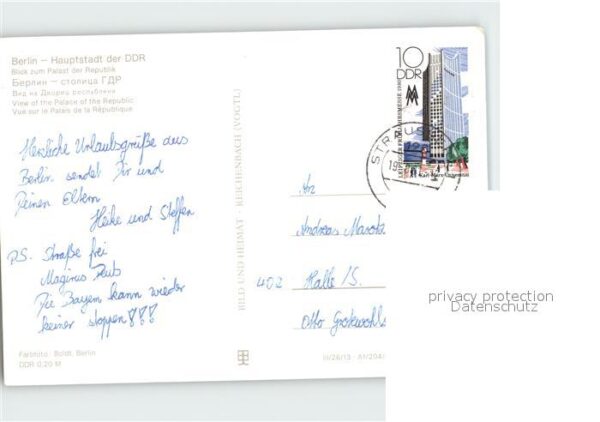 Berlin – Hauptstadt der DDR
Blick zum Palast der Republik
Берлин – столица ГДР
Вид на Дворец республики
View of the Palace of the Republic
Vue sur le Palais de la République
Herzliche Urlaubsgrüße aus
Berlin sendet Dir und
Deinen Eltern
Heike und Steffen
P.S. Straße frei
Die Bayen kann wieder
keiner stoppen!!!
Farbfoto: Boldt, Berlin
DDR 0,20 M
BILD UND HEIMAT · REICHENBACH (VOGTL)
10
DDR
MM
LEIPZIGER FRÜHJAHRSMESSE 1980
Karl-Marx-Universität
STRAUS
An
Andreas
402 Halle/S.
Otto Grotewohl
III/26/13
privacy protection
Datenschutz